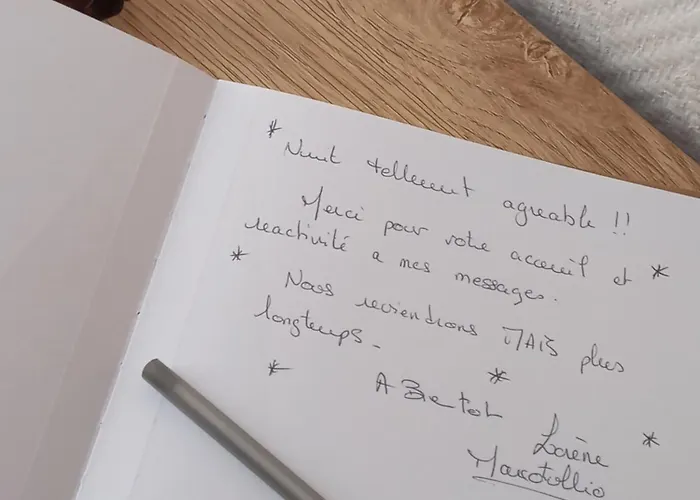 * Nuit tellement agreable !!
Merci pour votre acceuil et *
reactivité a mes messages.
* Nous reviendrons MAIS plus
longtemps.
* A Bientot *
Lorène *